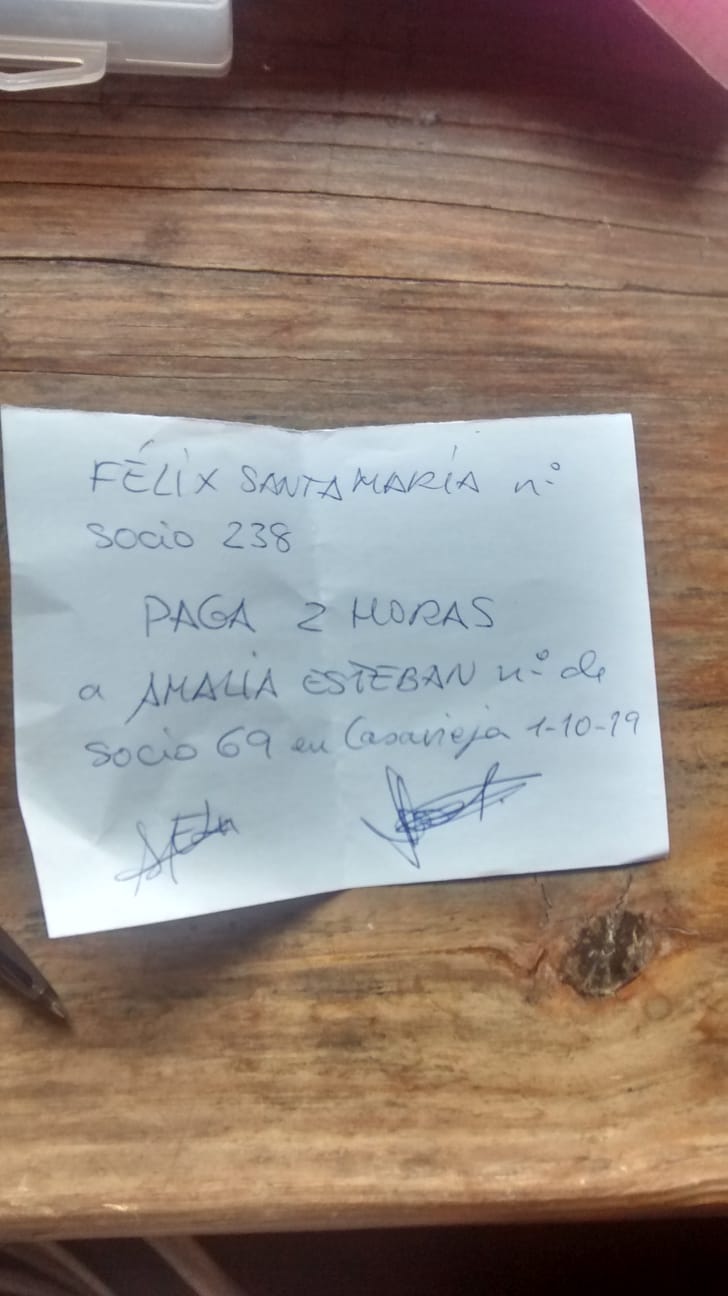 FÉLIX SANTAMARÍA nº
SOCIO 238
PAGA 2 HORAS
a AMALIA ESTEBAN nº de
SOCIO 69 en Casavieja 1-10-19